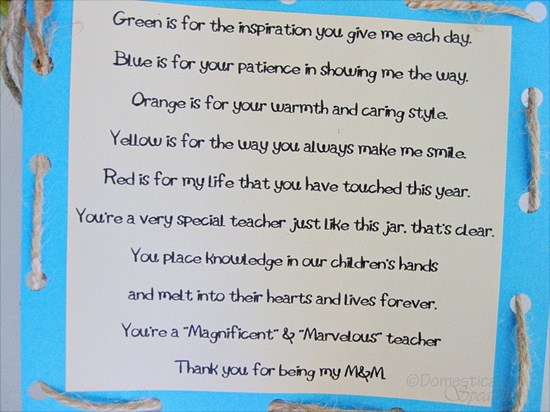 Green is for the inspiration you give me each day.
Blue is for your patience in showing me the way.
Orange is for your warmth and caring style.
Yellow is for the way you always make me smile.
Red is for my life that you have touched this year.
You're a very special teacher just like this jar, that's clear.
You place knowledge in our children's hands
and melt into their hearts and lives forever.
You're a "Magnificent" & "Marvelous" teacher
Thank you for being my M&M.